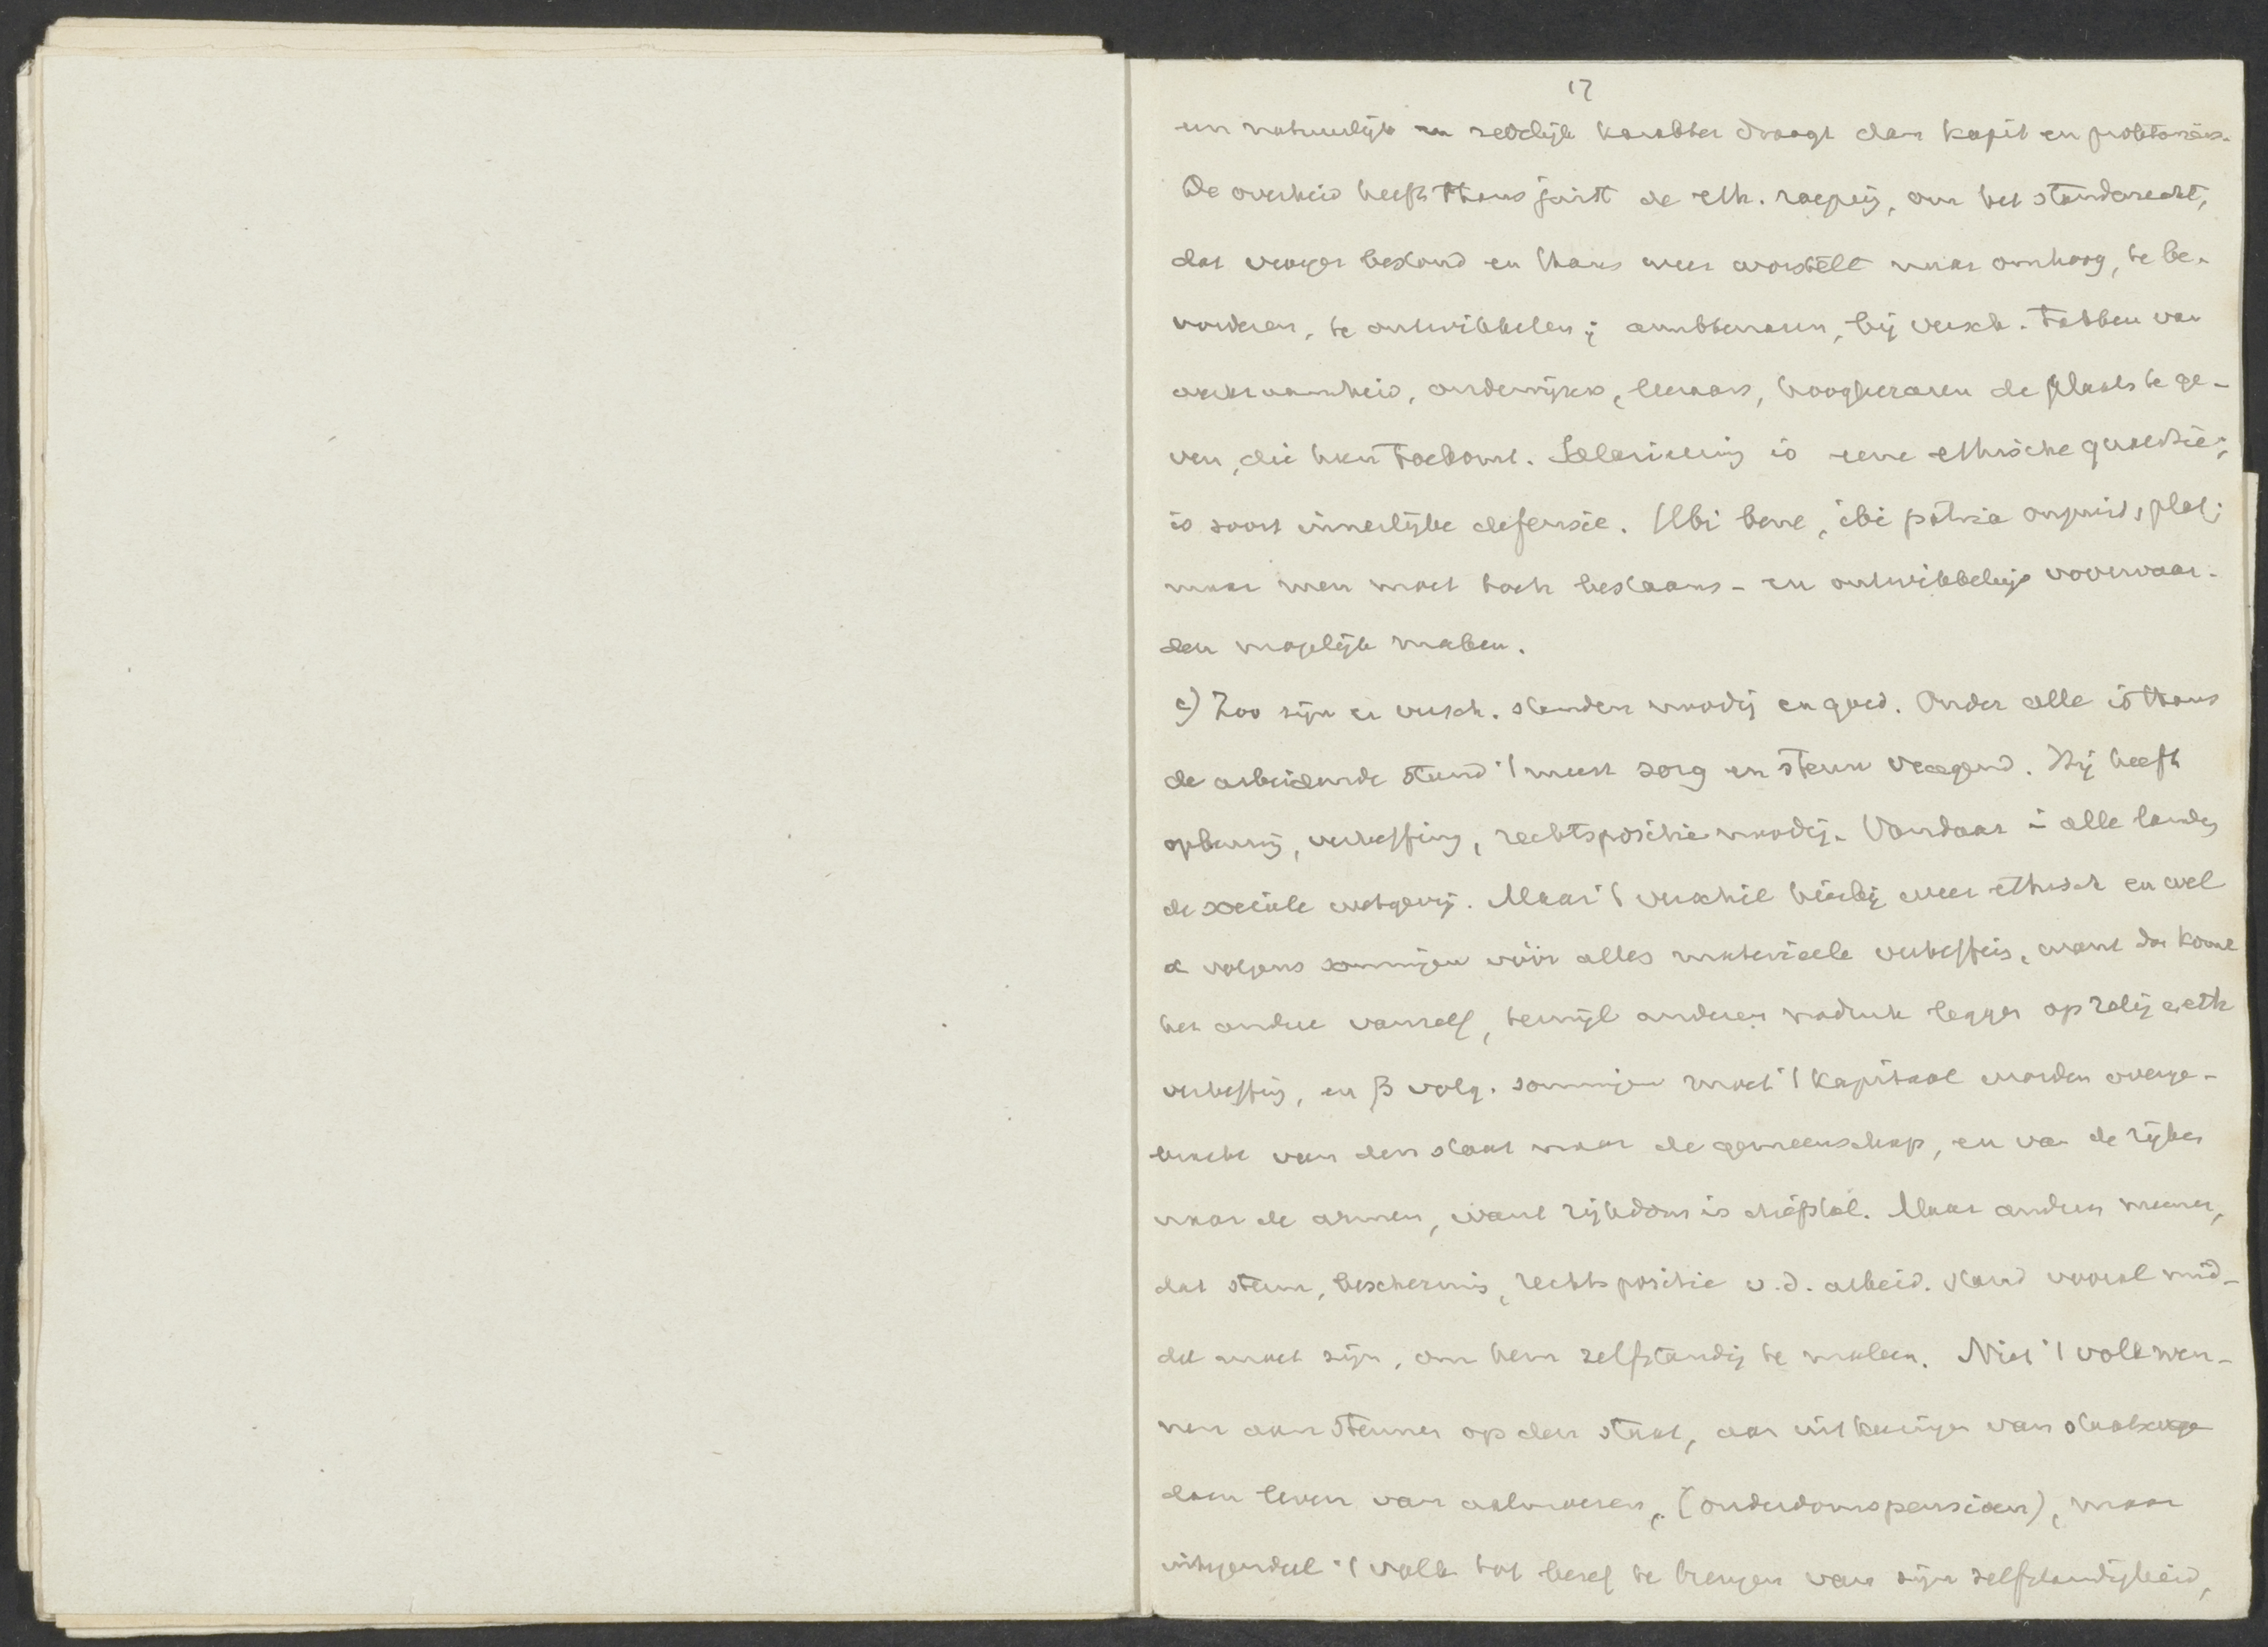 17
een natuurlijk en zedelijk karakter draagt dan kapit en proletariër.
De overheid heeft thans juist de eth. roeping, om het standsrecht,
dat vroeger bestond en thans weer worstelt naar omhoog, te be-
vorderen, te ontwikkelen; ambtenaren, bij versch. takken van
werkzaamheid, onderwijzers, leeraars, hoogleeraren de plaats te ge-
ven, die hun toekomt. Salarieering is eene ethische quaestie;
is soort innerlijke defensie. Ubi bene, ibi patria onjuist, plat;
maar men moet toch bestaans- en ontwikkelings voorwaar-
den mogelijk maken.
c) Zoo zijn er versch. standen noodig en goed. Onder alle is thans
de arbeidende stand 't meest zorg en steun vragend. Hij heeft
opbeuring, verheffing, rechtspositie noodig. Vandaar in alle landen
de sociale wetgeving. Maar 't verschil hierbij weer ethisch en wel
α volgens sommigen vóór alles materieele verheffing, want dan komt
het andere vanzelf, terwijl anderen nadruk leggen op relig en eth
verheffing, en β volg. sommigen moet 't kapitaal worden overge-
bracht van den staat naar de gemeenschap, en van de rijken
naar de armen, want rijkdom is diefstal. Maar anderen meenen,
dat steun, bescherming, rechtspositie v.d. arbeid. stand vooral mid-
del moet zijn, om hem zelfstandig te maken. Niet 't volk wen-
nen aan steunen op den staat, aan uitkeeringen van staatswege
doen leven van aalmoezen, (ouderdomspensioen), maar
integendeel 't volk tot besef te brengen van zijn zelfstandigheid,